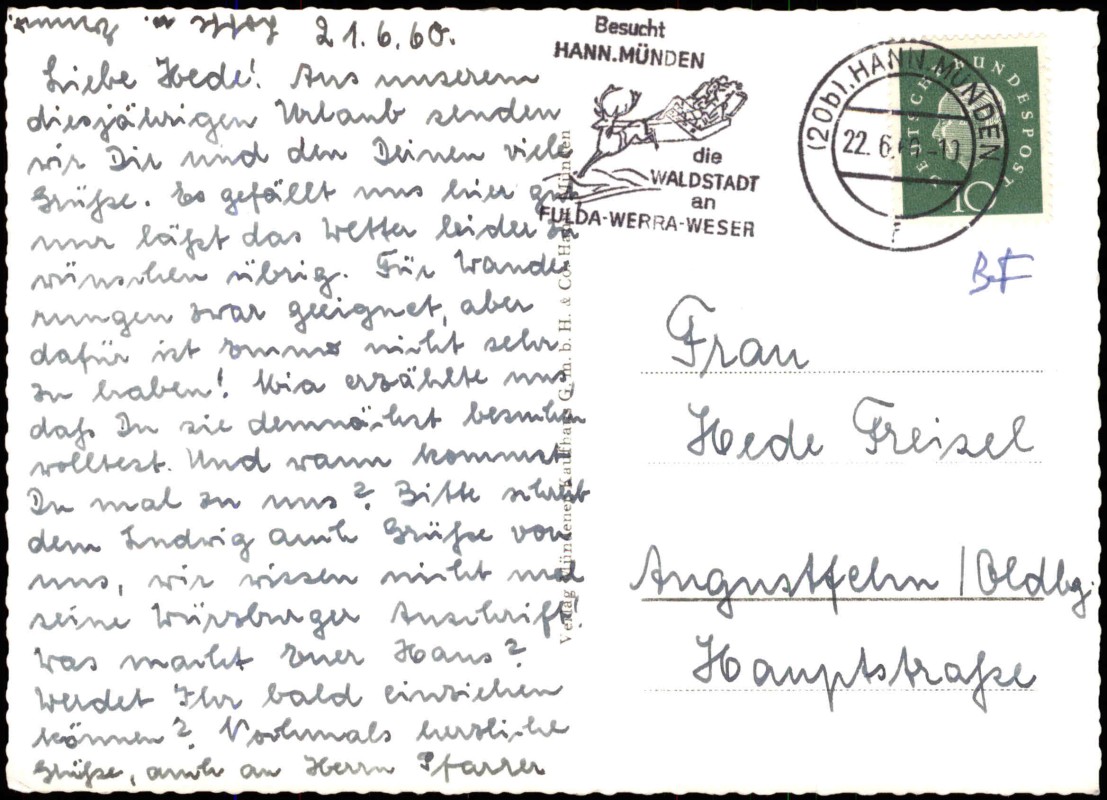 21.6.60.
Liebe Hede! Aus unserem
diesjährigen Urlaub senden
wir Dir und den Deinen viele
Grüße. Es gefällt uns hier gut
nur läßt das Wetter leider zu
wünschen übrig. Für Wande-
rungen zwar geeignet, aber
dafür ist Sonne nicht sehr
zu haben! Mia erzählte uns,
daß Du sie demnächst besuchen
wolltest. Und wann kommst
Du mal zu uns? Bitte schreib
dem Ludwig auch Grüße von
uns, wir wissen nicht mal
seine Würzburger Anschrift!
Was macht Euer Haus?
Werdet Ihr bald einziehen
können? Nochmals herzliche
Grüße, auch an Herrn Pfarrer
Besucht
HANN.MÜNDEN
die
WALDSTADT
an
FULDA-WERRA-WESER
(20b) HANN. MÜNDEN
22. 6.
DEUTSCHE BUNDESPOST
10
BF
Verlag Mündener Kaufhaus G. m. b. H. & Co. Hann. Münden
Frau
Hede Freisel
Augustfehn / Oldbg.
Hauptstraße